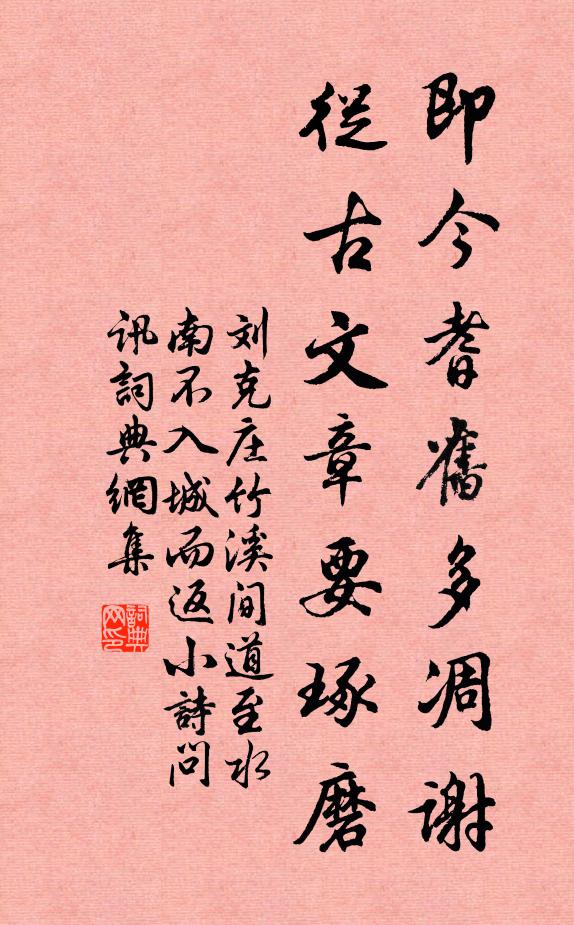 即今耆舊多凋谢
從古文章要琢磨
刘克庄竹溪间道至水
南不入城而返小詩問
讯詞典網集
詞典网印